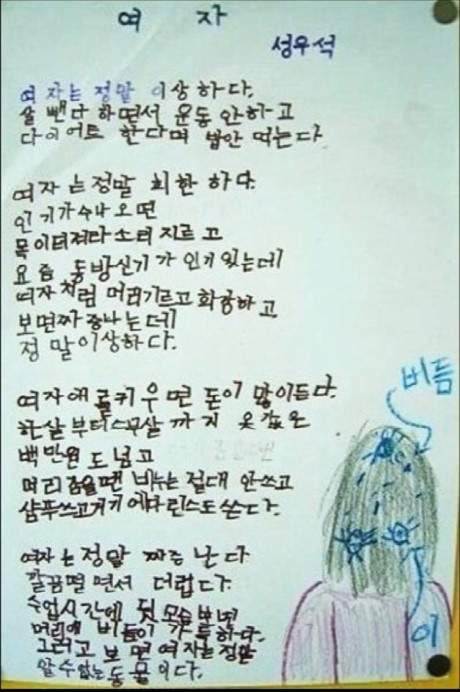 여 자
성우석
여자는 정말 이상하다.
살 뺀다 하면서 운동 안하고
다이어트 한다며 밥안 먹는다
여자는정말 희한 하다.
인기가수나오면
목이터져라소리지르고
요즘 동방신기가 인기있는데
여자처럼 머리기르고화장하고
보면짜증나는데
정말이상하다.
여자애를키우면 돈이 많이든다.
한살부터스무살 까지 옷값은
백만원도넘고
머리감을땐 비누는 절대 안쓰고
샴푸쓰고거기에다린스도쓴다.
여자는정말 짜증난다
깔끔떨면서 더럽다
수업시간에 뒷모습보면
머리에 비듬이 가득하다.
그러고 보면여자는정말
알수없는동물이다.
버듬
이